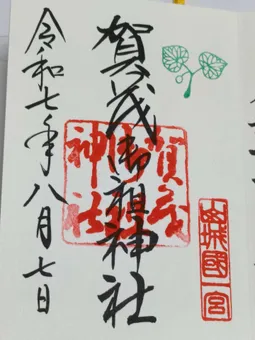 山城國一宮
賀茂御祖神社
賀茂御祖神社
令和七年八月七日